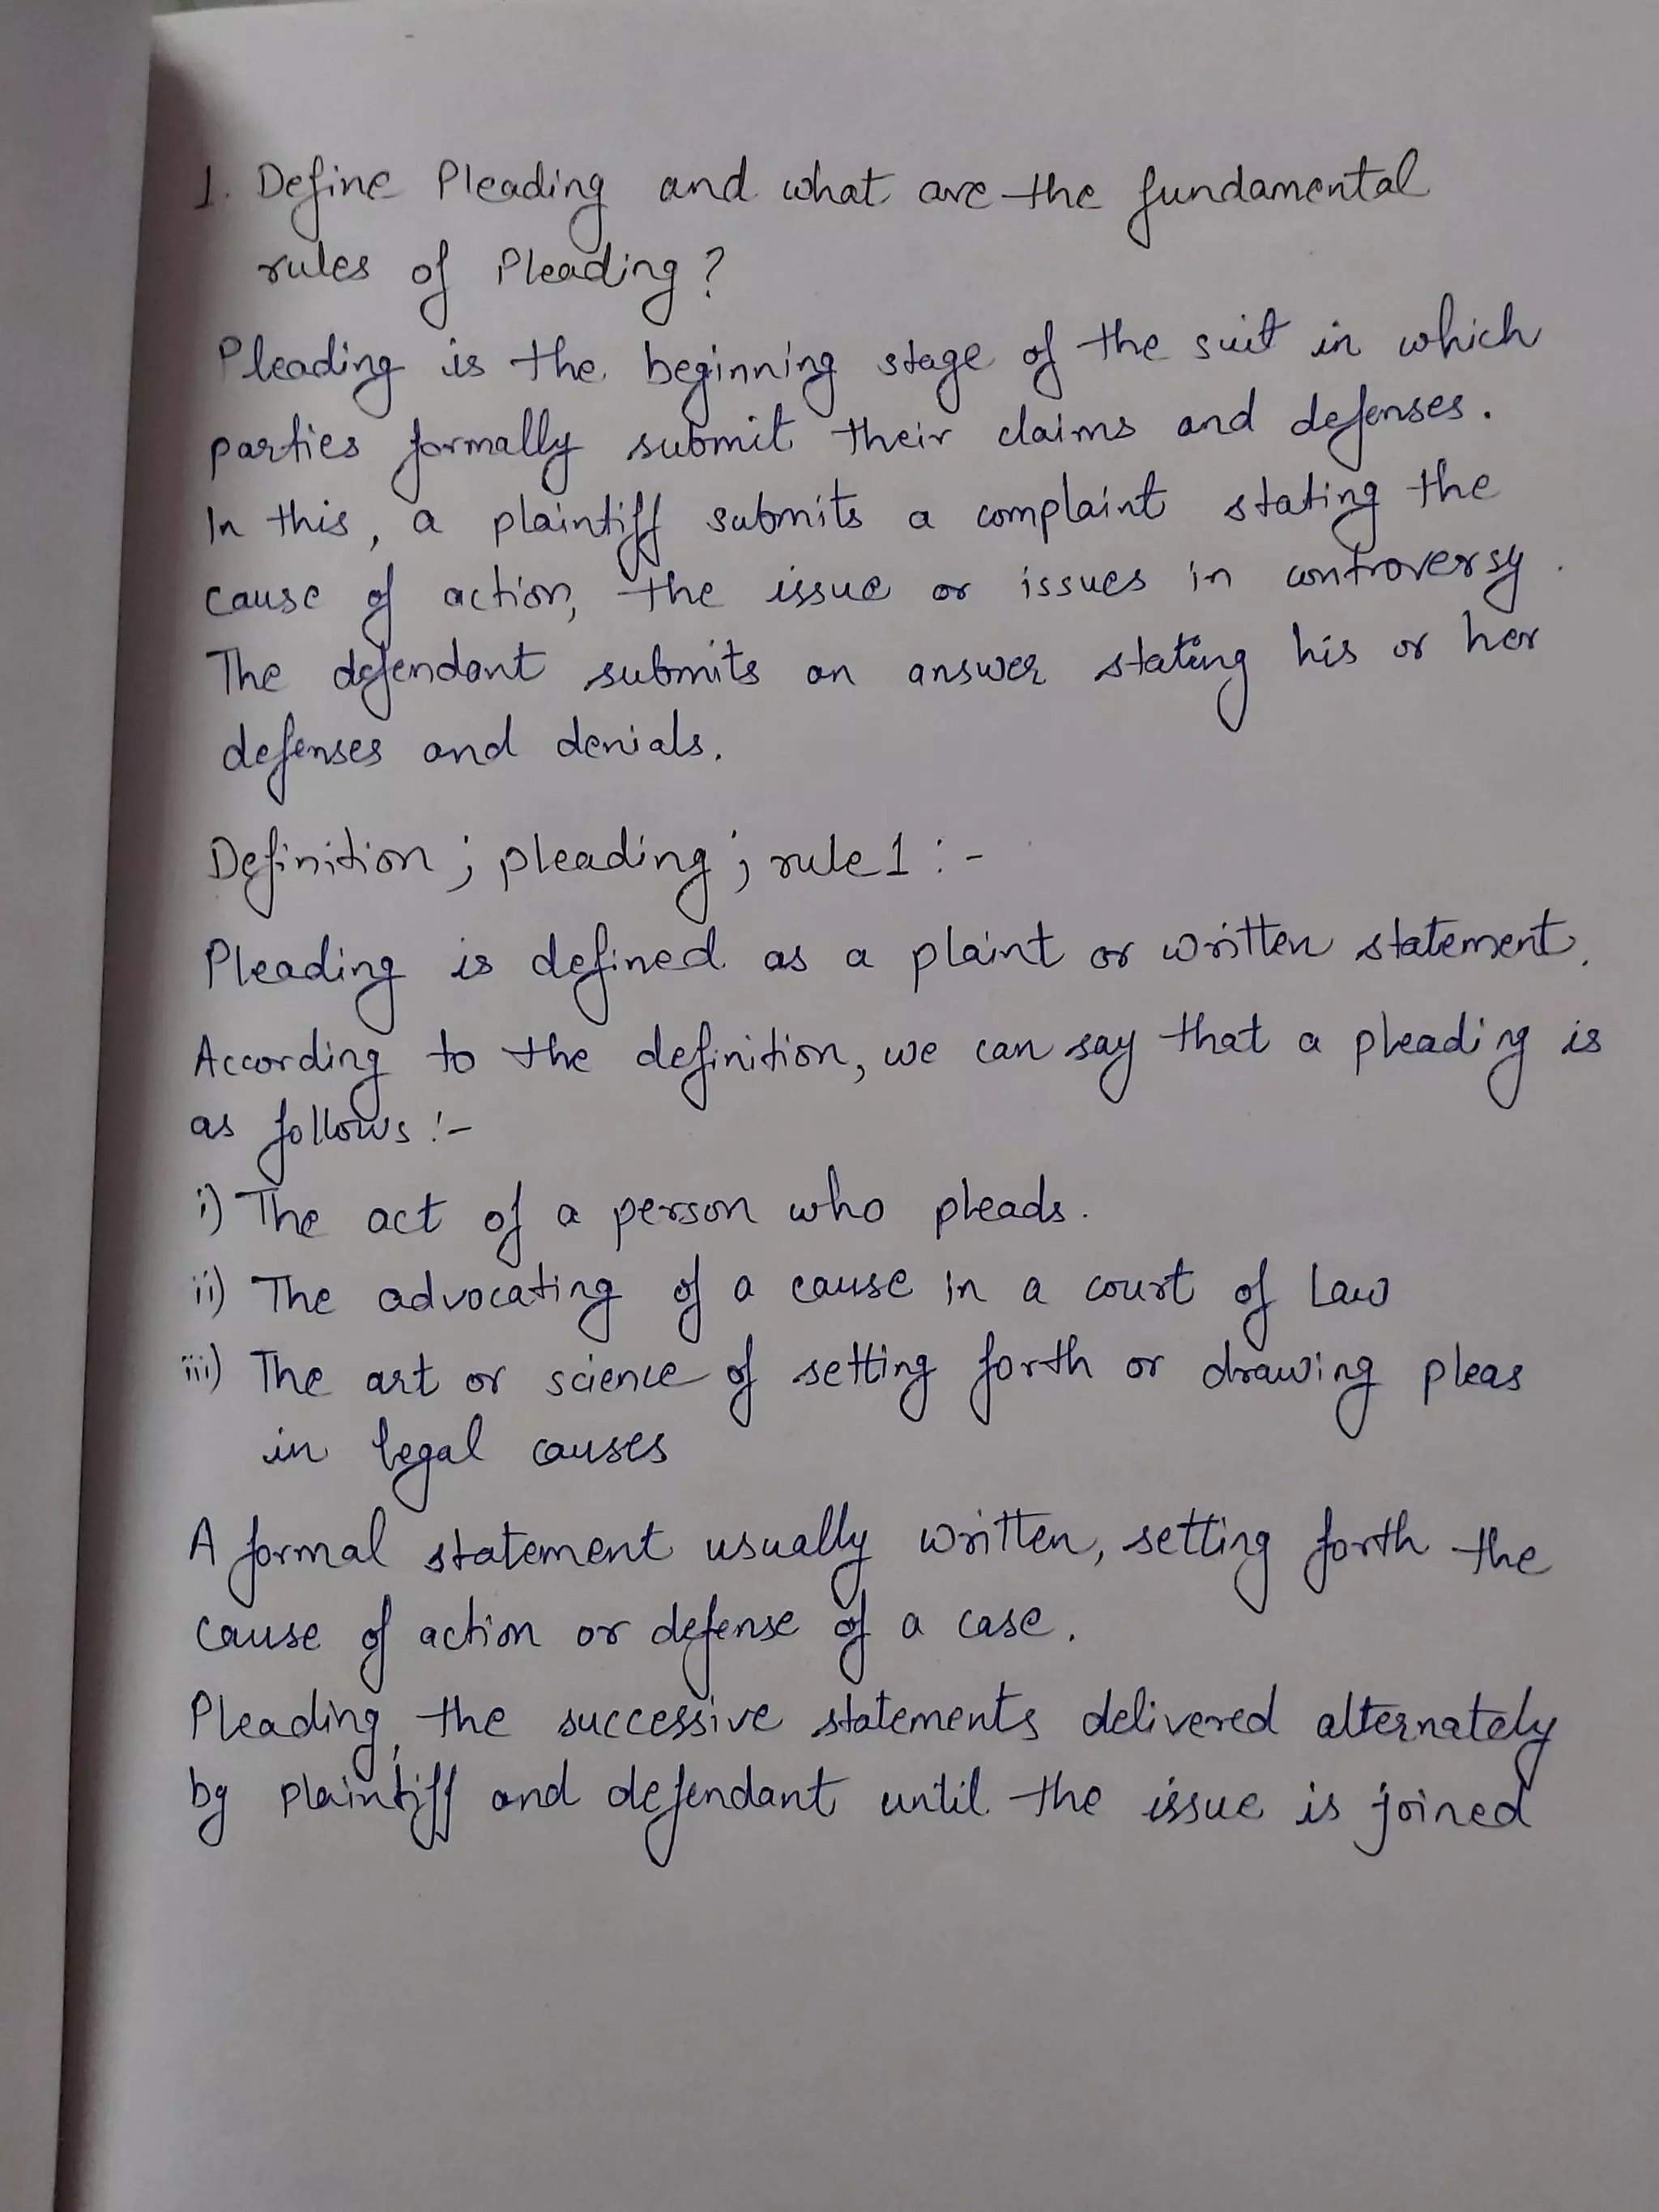 1. Define Pleading and what are the fundamental
rules of Pleading?
Pleading is the beginning stage of the suit in which
parties formally submit their claims and defenses.
In this, a plaintiff submits a complaint stating the
cause of action, the issue or issues in controversy.
The defendant submits an answer stating his or her
defenses and denials.
Definition; pleading; rule 1 :-
Pleading is defined as a plaint or written statement.
According to the definition, we can say that a pleading is
as follows :-
i) The act of a person who pleads.
ii) The advocating of a cause in a court of Law
iii) The art or science of setting forth or drawing pleas
in legal causes
A formal statement usually written, setting forth the
cause of action or defense of a case.
Pleading, the successive statements delivered alternately
by plaintiff and defendant until the issue is joined